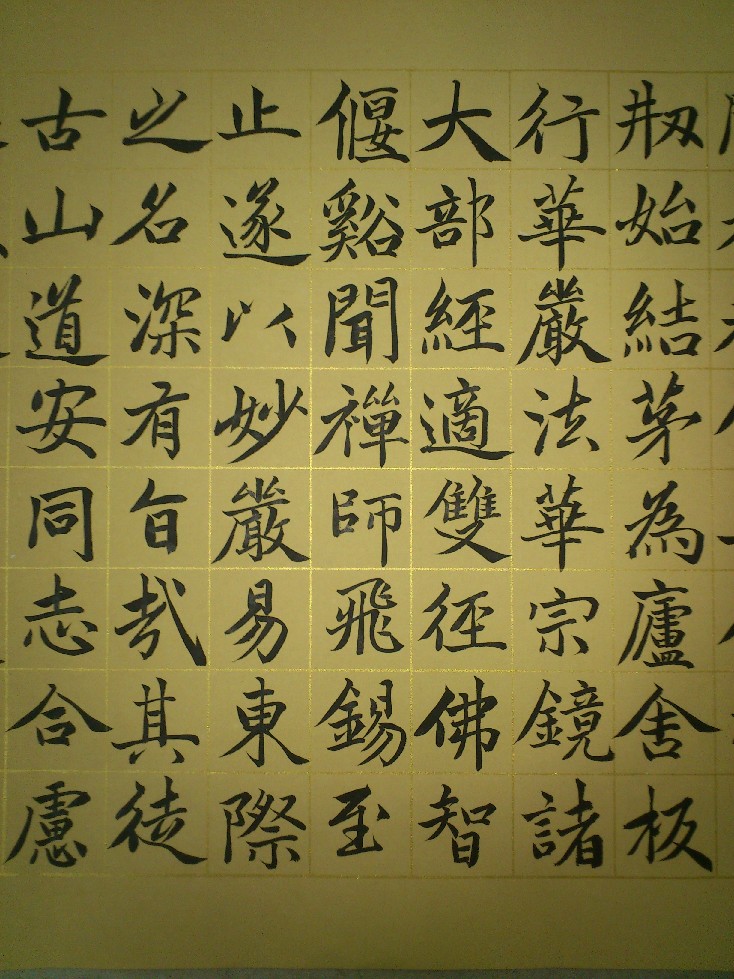 刱始結茅為廬舍板
行華嚴法華宗鏡諸
大部經適雙徑佛智
偃谿聞禪師飛錫至
止遂以妙嚴易東際
之名深有旨哉其徒
古山道安同志合慮